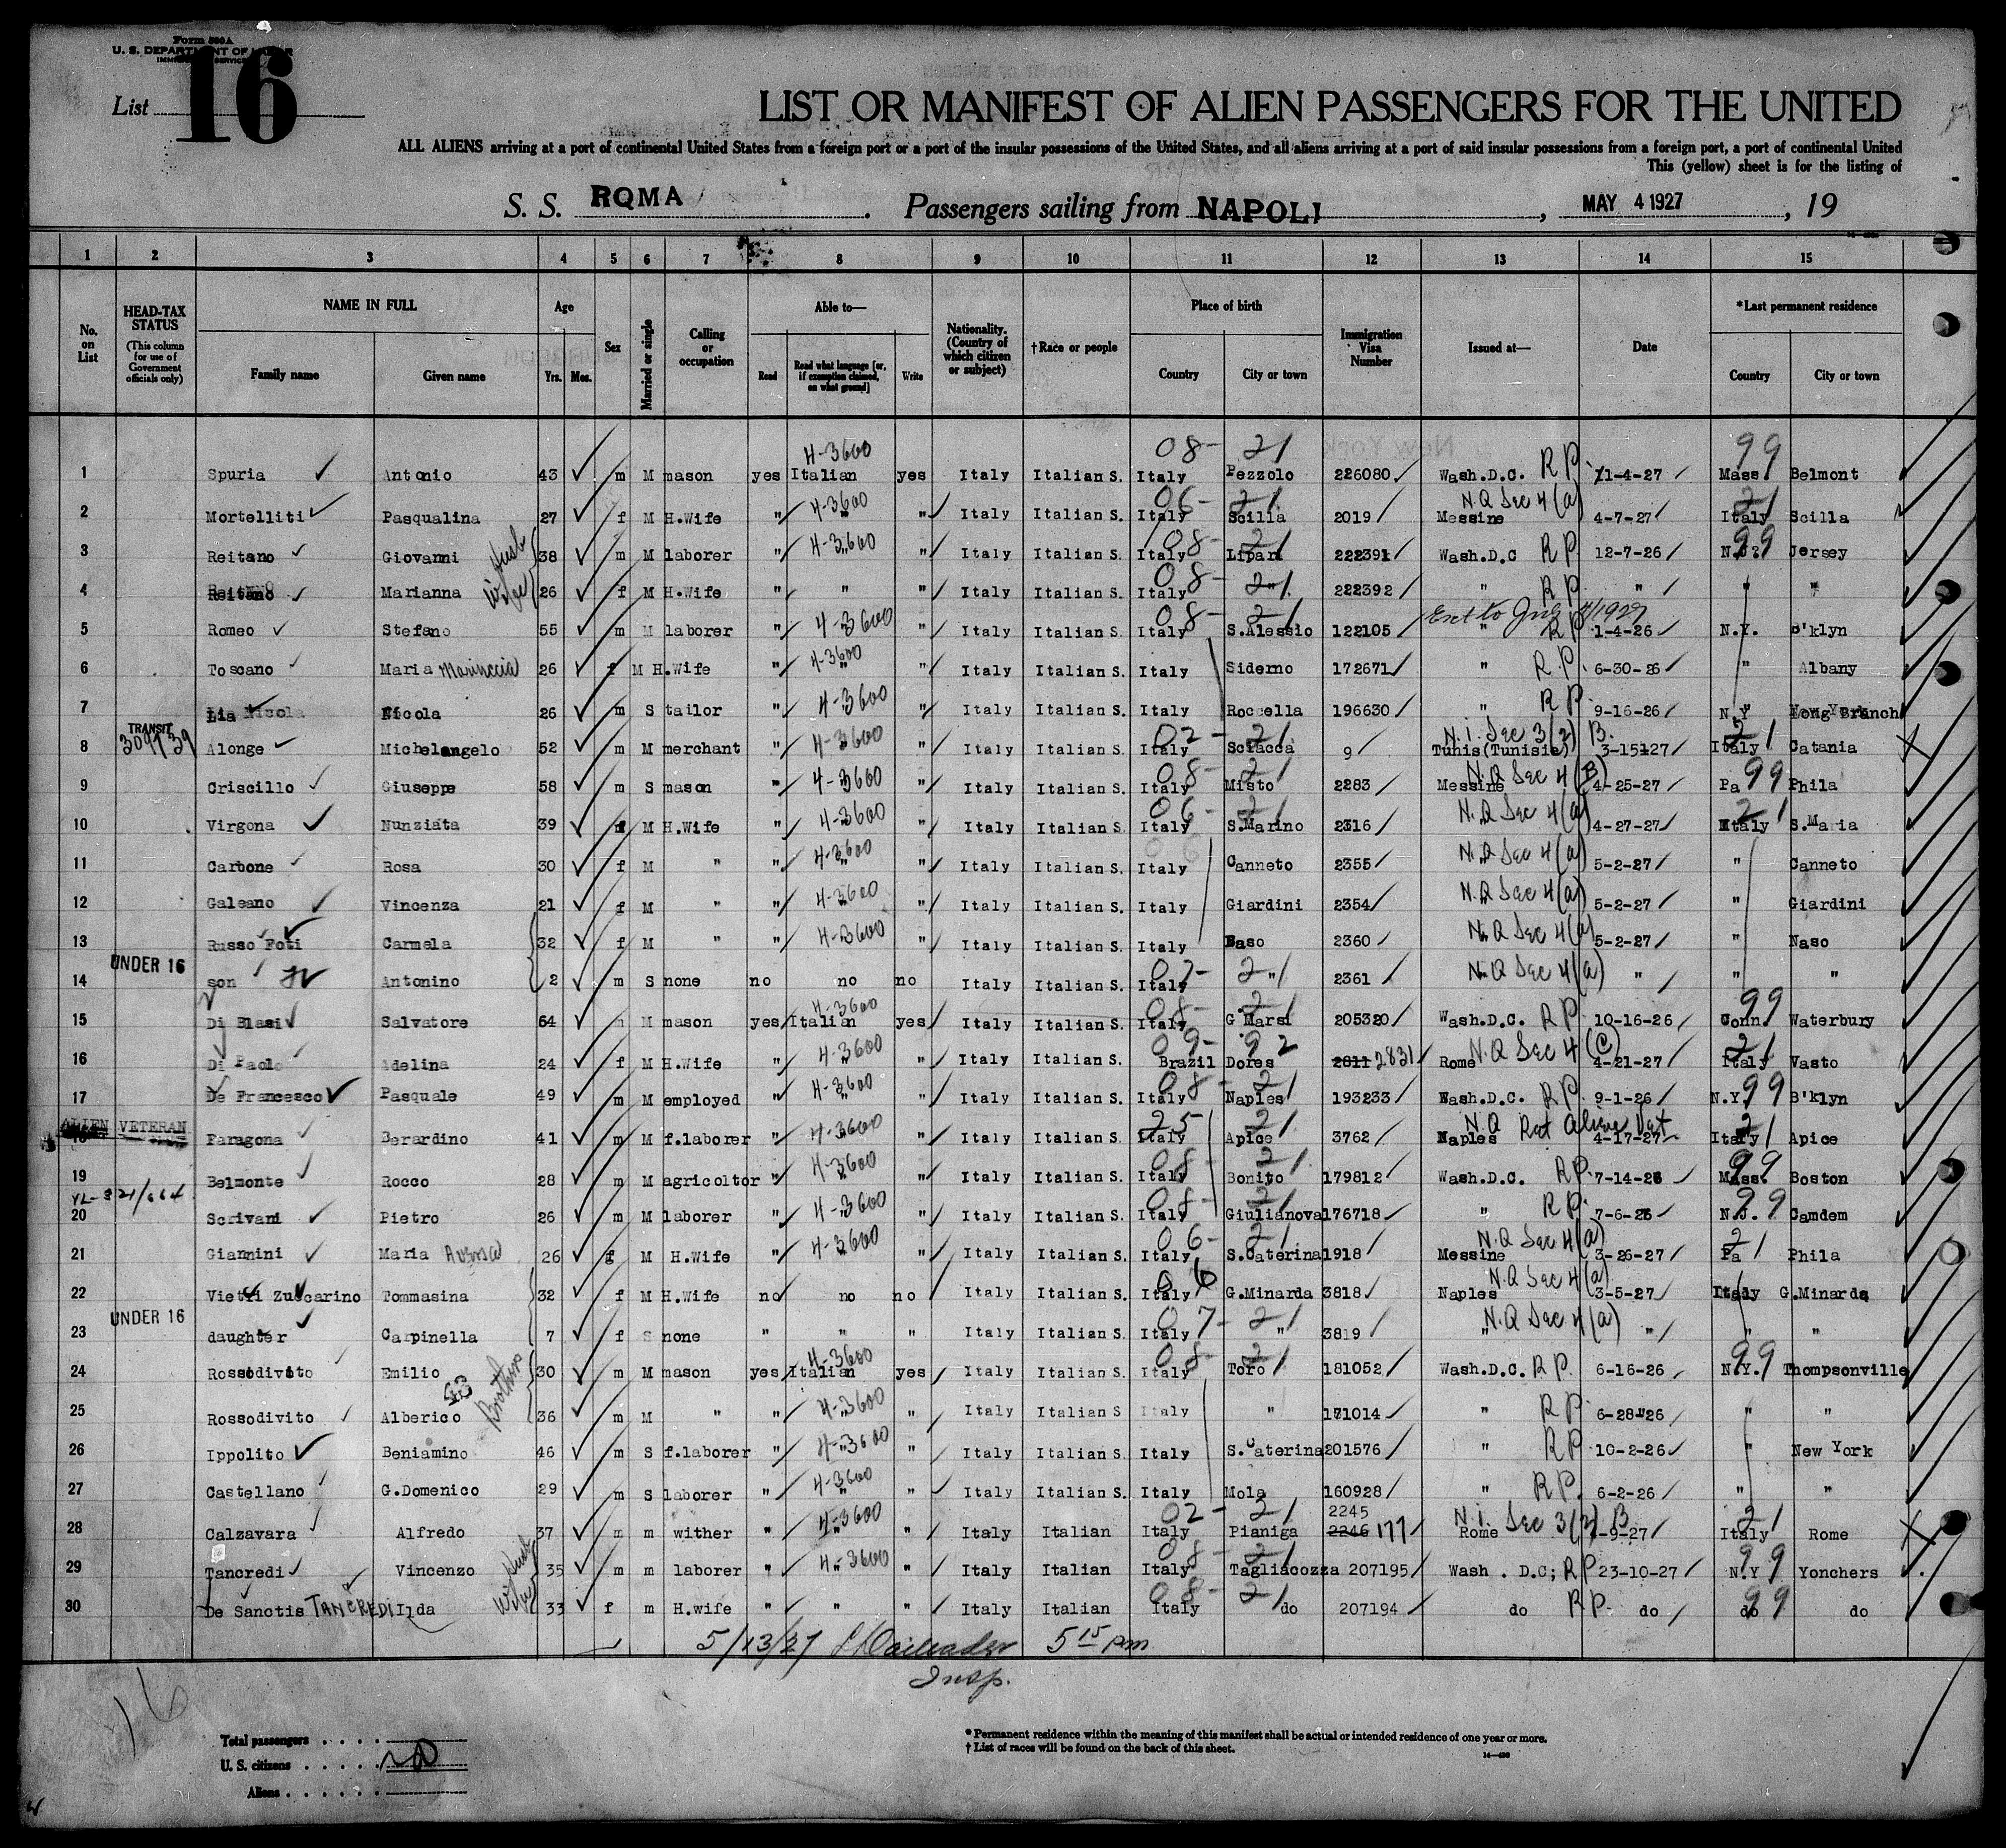 Form 500 A
U. S. DEPARTMENT OF LABOR
IMMIGRATION SERVICE
List 16
LIST OR MANIFEST OF ALIEN PASSENGERS FOR THE UNITED
ALL ALIENS arriving at a port of continental United States from a foreign port or a port of the insular possessions of the United States, and all aliens arriving at a port of said insular possessions from a foreign port, a port of continental United
This (yellow) sheet is for the listing of
S. S. ROMA. Passengers sailing from NAPOLI, MAY 4 1927, 19
1 2 3 4 5 6 7 8 9 10 11 12 13 14 15
No. on List
HEAD-TAX STATUS (This column for use of Government officials only)
NAME IN FULL Family name Given name
Age Yrs. Mos.
Sex
Married or single
Calling or occupation
Able to— Read Read what language [or, if exemption claimed, on what ground] Write
Nationality. (Country of which citizen or subject)
†Race or people
Place of birth Country City or town
Immigration Visa Number
Issued at—
Date
*Last permanent residence Country City or town
1 Spuria Antonio 43 m M mason yes Italian 4-3600 yes Italy Italian S. Italy 08- 21 Pezzolo 226080 Wash.D.C. R P 11-4-27 Mass 99 Belmont
2 Mortelliti Pasqualina 27 f M H.Wife " 4-3600 " Italy Italian S. Italy 06- 21 Scilla 2019 Messine N.Q Sec 4(a) 4-7-27 Italy 21 Scilla
3 Reitano Giovanni Husb 38 m M laborer " 4-3600 " Italy Italian S. Italy 08- 21 Lipari 222391 Wash.D.C R P 12-7-26 N.J. 99 Jersey
4 Reitano Marianna Wife 26 f M H.Wife " " " Italy Italian S. Italy 08- 21 " 222392 " R P " " "
5 Romeo Stefano 55 m M laborer " 4-3600 " Italy Italian S. Italy 08- 21 S.Alessio 122105 " R P 1-4-26 N.Y. B'klyn
6 Toscano Maria 26 f M H.Wife " 4-3600 " Italy Italian S. Italy Siderno 172671 " R P. 6-30-26 " Albany
7 Lia Nicola 26 m S tailor " 4-3600 " Italy Italian S. Italy Roccella 196630 " R P. 9-16-26 N.Y Long Branch
8 TRANSIT Alonge Michelangelo 52 m M merchant " 4-3600 " Italy Italian S. Italy 02- 21 Sciacca 9 Tunis(Tunisie) N.i. Sec 3(2) B. 3-15-27 Italy 21 Catania
9 Criscillo Giuseppe 58 m S mason " 4-3600 " Italy Italian S. Italy 08- 21 Misto 2283 Messine N.Q Sec 4(B) 4-25-27 Pa 99 Phila
10 Virgona Nunziata 39 f M H.Wife " 4-3600 " Italy Italian S. Italy 06- 21 S.Marino 2316 " N.Q Sec 4(a) 4-27-27 Italy 21 S.Maria
11 Carbone Rosa 30 f M " " 4-3600 " Italy Italian S. Italy Canneto 2355 " N.Q Sec 4(a) 5-2-27 " Canneto
12 Galeano Vincenza 21 f M " " 4-3600 " Italy Italian S. Italy Giardini 2354 " N.Q Sec 4(a) 5-2-27 " Giardini
13 Russo Foti Carmela 32 f M " " 4-3600 " Italy Italian S. Italy Naso 2360 " N.Q Sec 4(a) 5-2-27 " Naso
14 UNDER 16 son Antonino 2 m S none no no no Italy Italian S. Italy 07- 21 " 2361 " N.Q Sec 4(a) " " "
15 Di Blasi Salvatore 54 m M mason yes Italian 4-3600 yes Italy Italian S. Italy 08- 21 G Marsi 205320 Wash.D.C. R P. 10-16-26 Conn. 99 Waterbury
16 Di Paolo Adelina 24 f M H.Wife " 4-3600 " Italy Italian S. Brazil 09- 92 Dores 2811 2831 Rome N.Q Sec 4(C) 4-21-27 Italy 21 Vasto
17 De Francesco Pasquale 49 m M employed " 4-3600 " Italy Italian S. Italy 08- 21 Naples 193233 Wash.D.C. R P. 9-1-26 N.Y. 99 B'klyn
18 ALIEN VETERAN Faragona Berardino 41 m M f.laborer " 4-3600 " Italy Italian S. Italy 25 21 Apice 3762 Naples N.Q Ret Alien Vet 4-17-27 Italy 21 Apice
19 Belmonte Rocco 28 m M agricoltor " 4-3600 " Italy Italian S. Italy 08- 21 Bonito 179812 Wash.D.C. R P. 7-14-26 Mass. 99 Boston
20 Scrivani Pietro 26 m M laborer " 4-3600 " Italy Italian S. Italy 08- 21 Giulianova 176718 " R P. 7-6-26 N.J. 99 Camdem
21 Giannini Maria 26 f M H.Wife " 4-3600 " Italy Italian S. Italy 06- 21 S.Caterina 1918 Messine N.Q Sec 4(a) 3-26-27 Pa 21 Phila
22 Vietri Zuccarino Tommasina 32 f M H.Wife no no no Italy Italian S. Italy 06 G.Minarda 3818 Naples N.Q Sec 4(a) 3-5-27 Italy G.Minarda
23 UNDER 16 daughter Carpinella 7 f S none " " " Italy Italian S. Italy 07- 21 " 3819 " N.Q Sec 4(a) " " "
24 Rossodivito Emilio Brothers 30 m M mason yes Italian 4-3600 yes Italy Italian S. Italy 08- 21 Toro 181052 Wash.D.C. R P. 6-16-26 N.Y. 99 Thompsonville
25 Rossodivito Alberico 36 m M " " 4-3600 " Italy Italian S Italy " 171014 " R P. 6-28-26 " "
26 Ippolito Beniamino 46 m S f.laborer " 4-3600 " Italy Italian S. Italy S.Caterina 201576 " R P 10-2-26 " New York
27 Castellano G.Domenico 29 m S laborer " 4-3600 " Italy Italian S. Italy Mola 160928 " R P. 6-2-26 " "
28 Calzavara Alfredo 37 m m wither " 4-3600 " Italy Italian Italy 02- 21 Pianiga 2245 2246 177 Rome N.i. Sec 3(2) B -9-27 Italy 21 Rome
29 Tancredi Vincenzo Husb 35 m m laborer " 4-3600 " Italy Italian Italy 08- 21 Tagliacozza 207195 Wash . D.C; R P 23-10-27 N.Y 99 Yonchers
30 De Sanctis TANCREDI Ilda Wife 33 f m H.wife " " " Italy Italian Italy 08- 21 do 207194 do R P- do do 99 do
5/13/27 5 15 pm
Insp.
16
Total passengers . . . .
U. S. citizens . . . . .
Aliens . . . . . .
* Permanent residence within the meaning of this manifest shall be actual or intended residence of one year or more.
† List of races will be found on the back of this sheet.